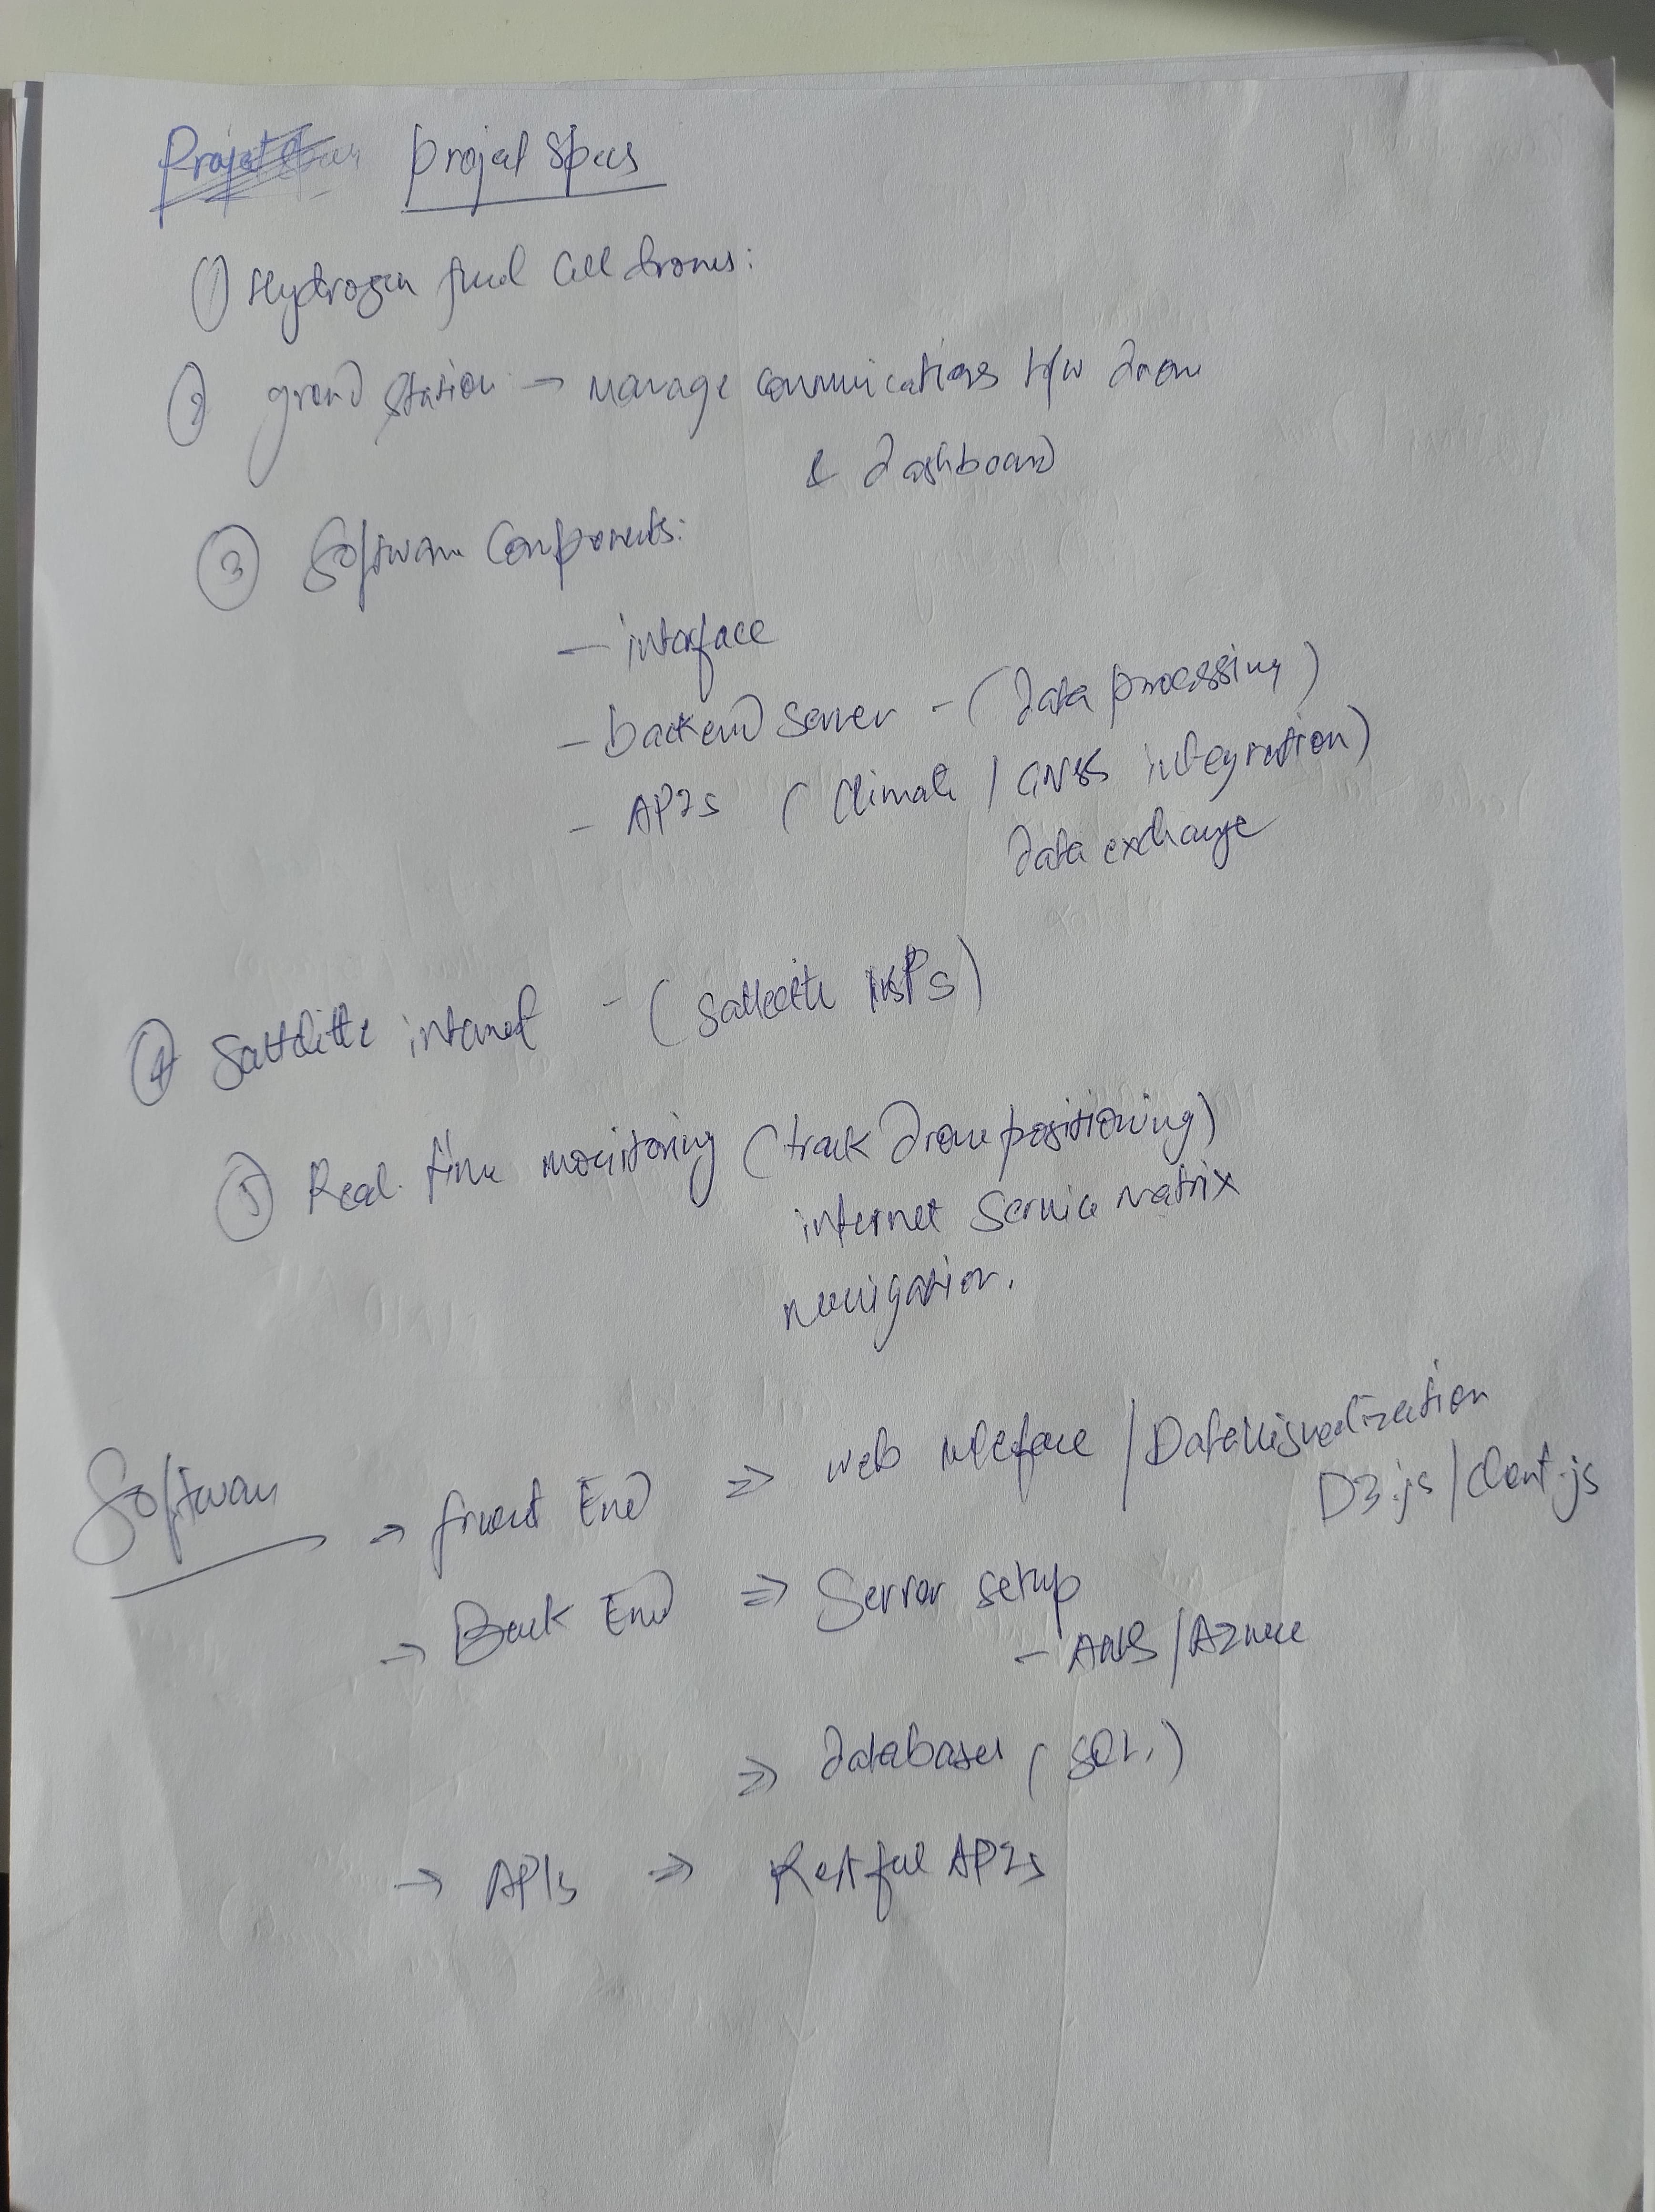 Project Specs
① Hydrogen fuel Cell drones:
② ground station → manage communications b/w drone
& dashboard
③ Software Components:
- interface
- backend server - (data processing)
- APIs (Climate / GNSS integration)
data exchange
④ Sattelitte internet - (Satteeite ISPs)
⑤ Real time monitoring (track drone positioning)
internet Service matrix
navigation.
Software → front End ⇒ web inteface / Data visualization
D3.js / Chart.js
→ Back End ⇒ Server setup
- AWS / Azure
⇒ databases (SQL,)
→ APIs ⇒ Restful APIs